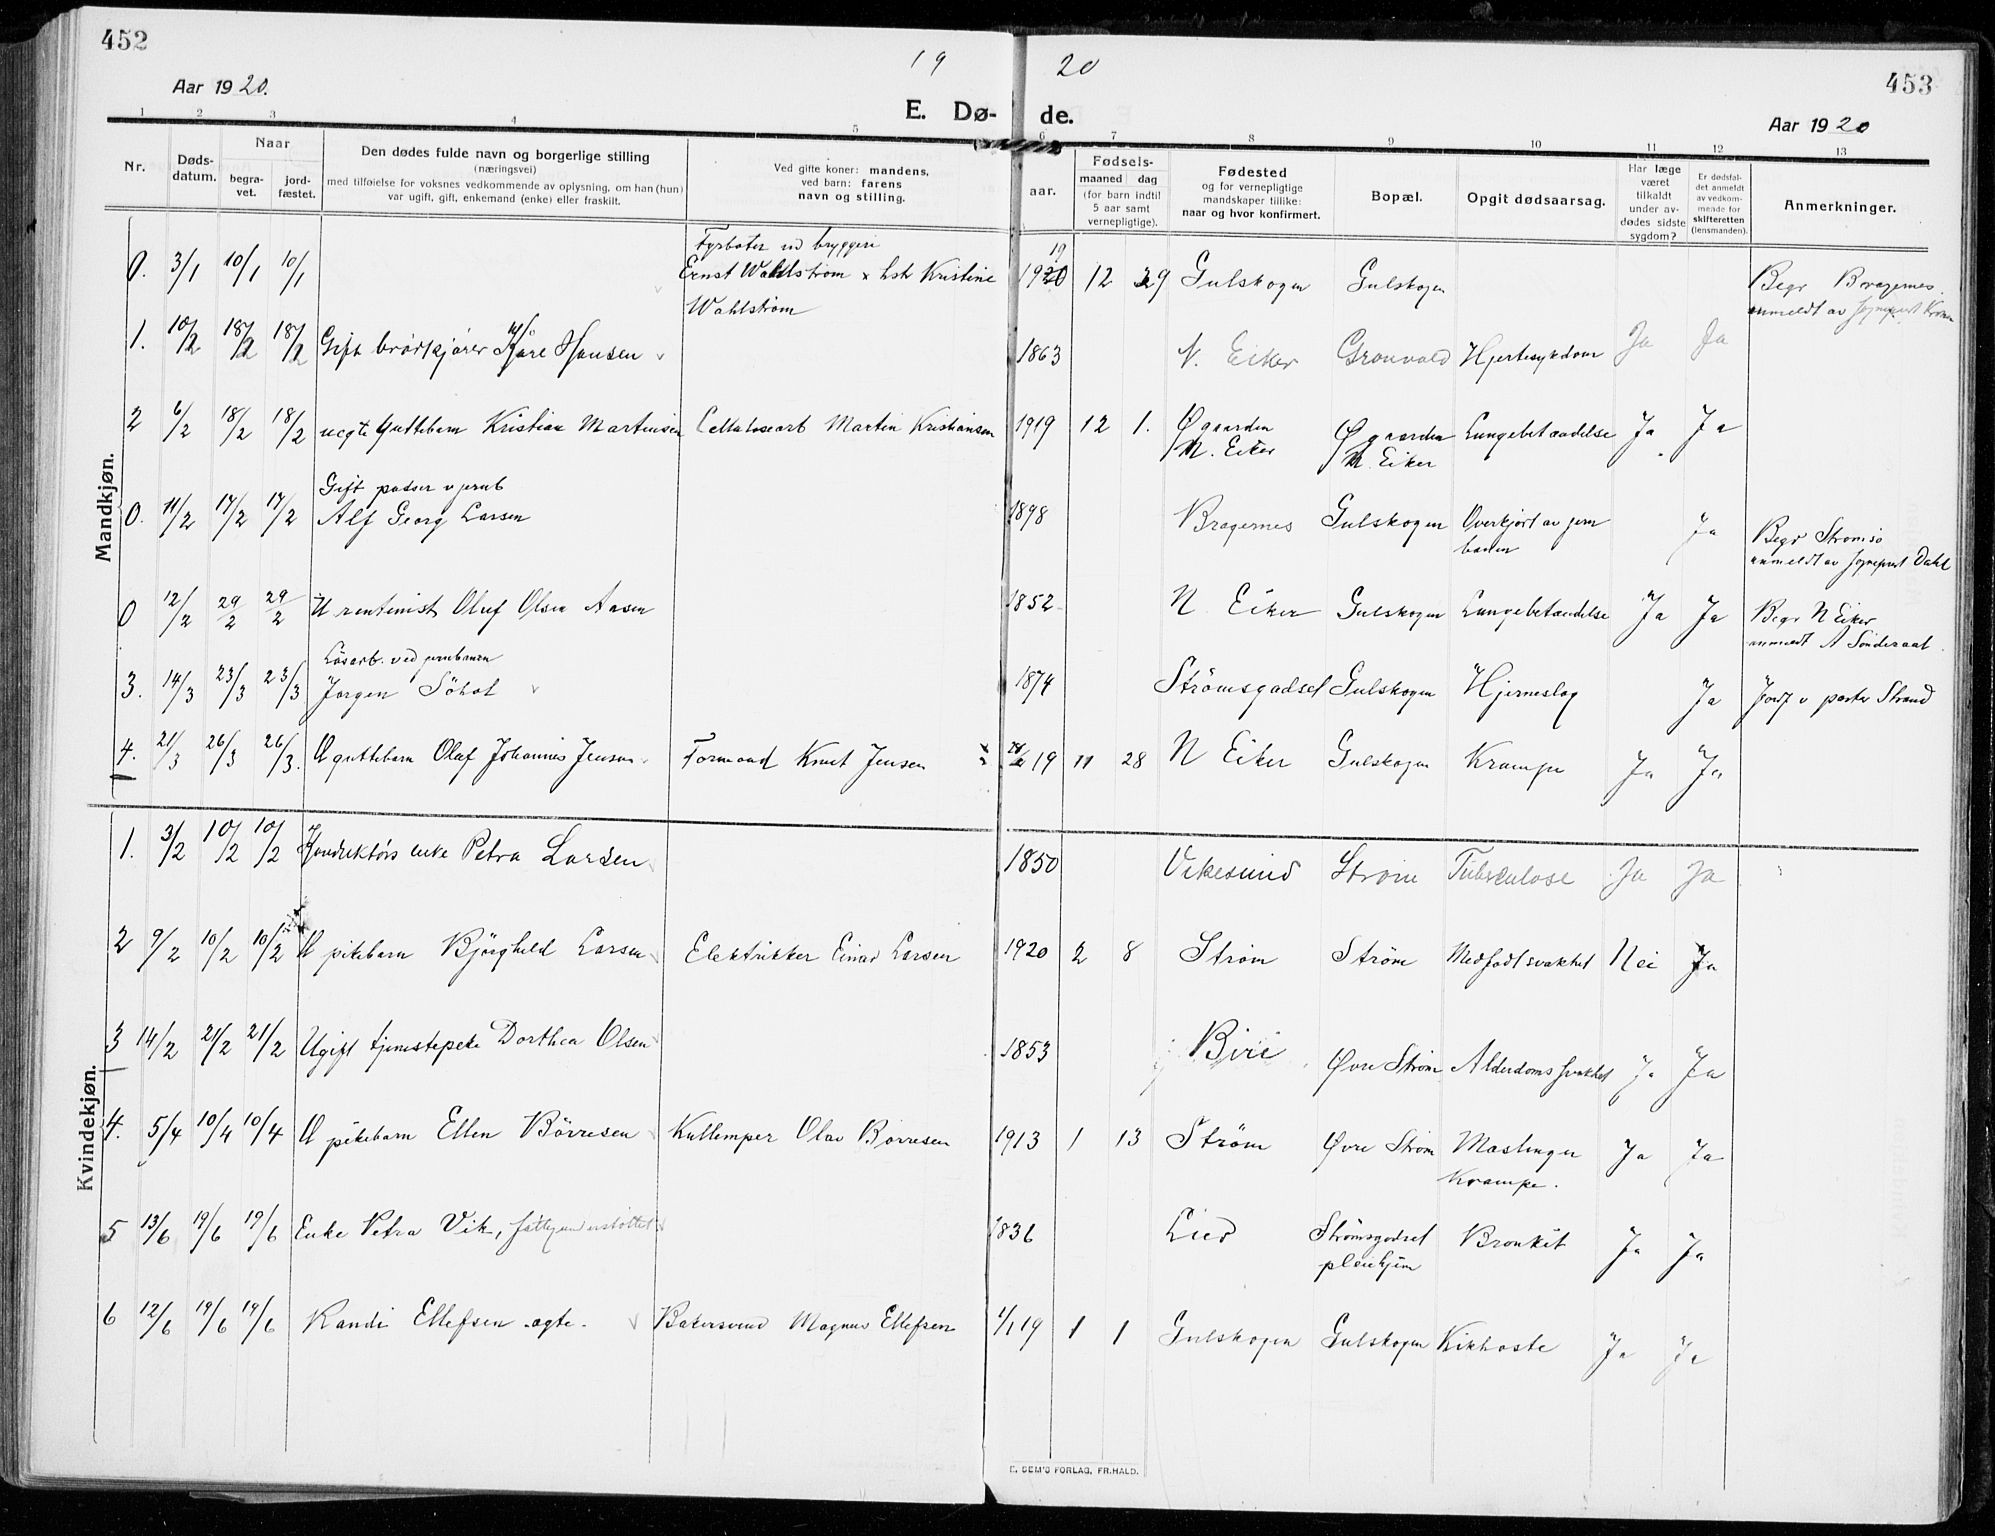 452
19 20
453
Aar 1920.
E. Dø- de.
Aar 1920
1 2 3 4 5 6 7 8 9 10 11 12 13
Nr.
Døds-
datum.
Naar
begra-
vet.
jord-
fæstet.
Den dødes fulde navn og borgerlige stilling
(næringsvei)
med tilføielse for voksnes vedkommende av oplysning, om han (hun)
var ugift, gift, enkemand (enke) eller fraskilt.
Ved gifte koner: mandens,
ved barn: farens
navn og stilling.
aar.
Fødsels-
maaned dag
(for barn indtil
5 aar samt
vernepligtige).
Fødested
og for vernepligtige
mandskaper tillike:
naar og hvor konfirmert.
Bopæl.
Opgit dødsaarsag.
Har læge
været
tilkaldt
under av-
dødes sidste
sygdom?
Er dødsfal-
det anmeldt
av vedkom-
mende for
skifteretten
(lensmanden).
Anmerkninger.
Mandkjøn.
Fyrbøter ved bryggeri
0. 3/1 10/1 10/1 Ernst Wahlstrøm x hst Kristine 1920 19 12 29 Gulskogen Gulskogen Begr Bragernes
Wahlstrøm anmeldt av sognepr
1. 10/2 18/2 18/2 Gift brødkjører Kåre Hansen 1863 N. Eiker Grønvold Hjertesykdom Ja Ja
2 6/2 18/2 18/2 uegte guttebarn Kristian Martinsen Cellulosearb Martin Kristiansen 1919 12 1. Øgaarden Øgaarden Lungebetændelse Ja Ja
N. Eiker N. Eiker
Gift pudser v jernb
0. 11/2 17/2 17/2 Alf Georg Larsen 1898 Bragernes Gulskogen Overkjørt av jern Ja Begr Strømsø
banen anmeldt av sogneprest Dahl
0 12/2 29/2 29/2 U rentenist Oluf Olsen Aasen 1852 N. Eiker Gulskogen Lungebetændelse Ja Ja Begr N Eiker
anmeldt A Sønderaal
Løsarb. ved jernbanen
3. 14/3 23/3 23/3 Jørgen Søhol 1874 Strømsgodset Gulskogen Hjerneslag Ja Jordf v pastor Strand
4. 21/3 26/3 26/3. U guttebarn Olaf Johannis Jensen Formand Knut Jensen 19 11 28 N Eiker Gulskogen Krampe Ja Ja
Kvindekjøn.
1. 3/2 10/2 10/2 Konduktørs enke Petra Larsen 1850 Vikesund Strøm Tuberculose Ja Ja
2 9/2 10/2 10/2 U pikebarn Bjørghild Larsen Elektrikker Einar Larsen 1920 2 8 Strøm Strøm Medfødt svakhet Nei Ja
3 14/2 21/2 21/2 Ugift tjenestepike Dorthea Olsen 1853 Biri Øvre Strøm Alderdomssvakhet Ja Ja
4. 5/4 10/4 10/4 U pikebarn Ellen Børresen Kullemper Olav Børresen 1913 1 13 Strøm Øvre Strøm Mæslinger Ja Ja
Krampe.
5 13/6 19/6 19/6 Enke Petra Vik, fattigunderstøttet 1836 Lier Strømsgodset Bronkit Ja Ja
pleiehjem
6 12/6 19/6 19/6 Randi Ellefsen ægte. Bakersvend Magnus Ellefsen 1/1 19 1 1 Gulskogen Gulskogen Kikhoste Ja Ja
E. SEM'S FORLAG, FR.HALD.